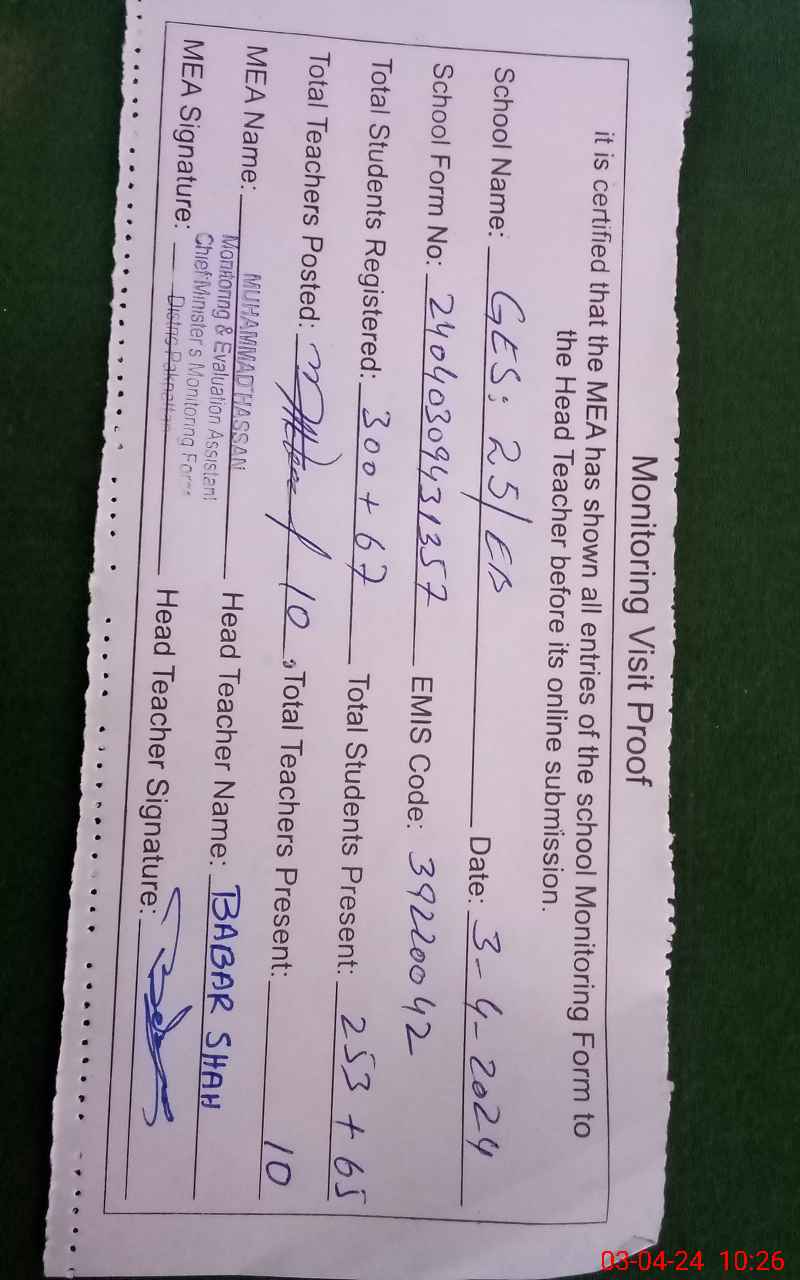 Monitoring Visit Proof
it is certified that the MEA has shown all entries of the school Monitoring Form to
the Head Teacher before its online submission.
School Name: GES: 25/EB Date: 3-4-2024
School Form No: 24040309431357 EMIS Code: 39220042
Total Students Registered: 300 + 67 Total Students Present: 253 + 65
Total Teachers Posted: 10, Total Teachers Present: 10
MEA Name: MUHAMMAD HASSAN Head Teacher Name: BABAR SHAH
Monitoring & Evaluation Assistant
Chief Minister's Monitoring Force
MEA Signature: District Pakpattan Head Teacher Signature:
03-04-24 10:26